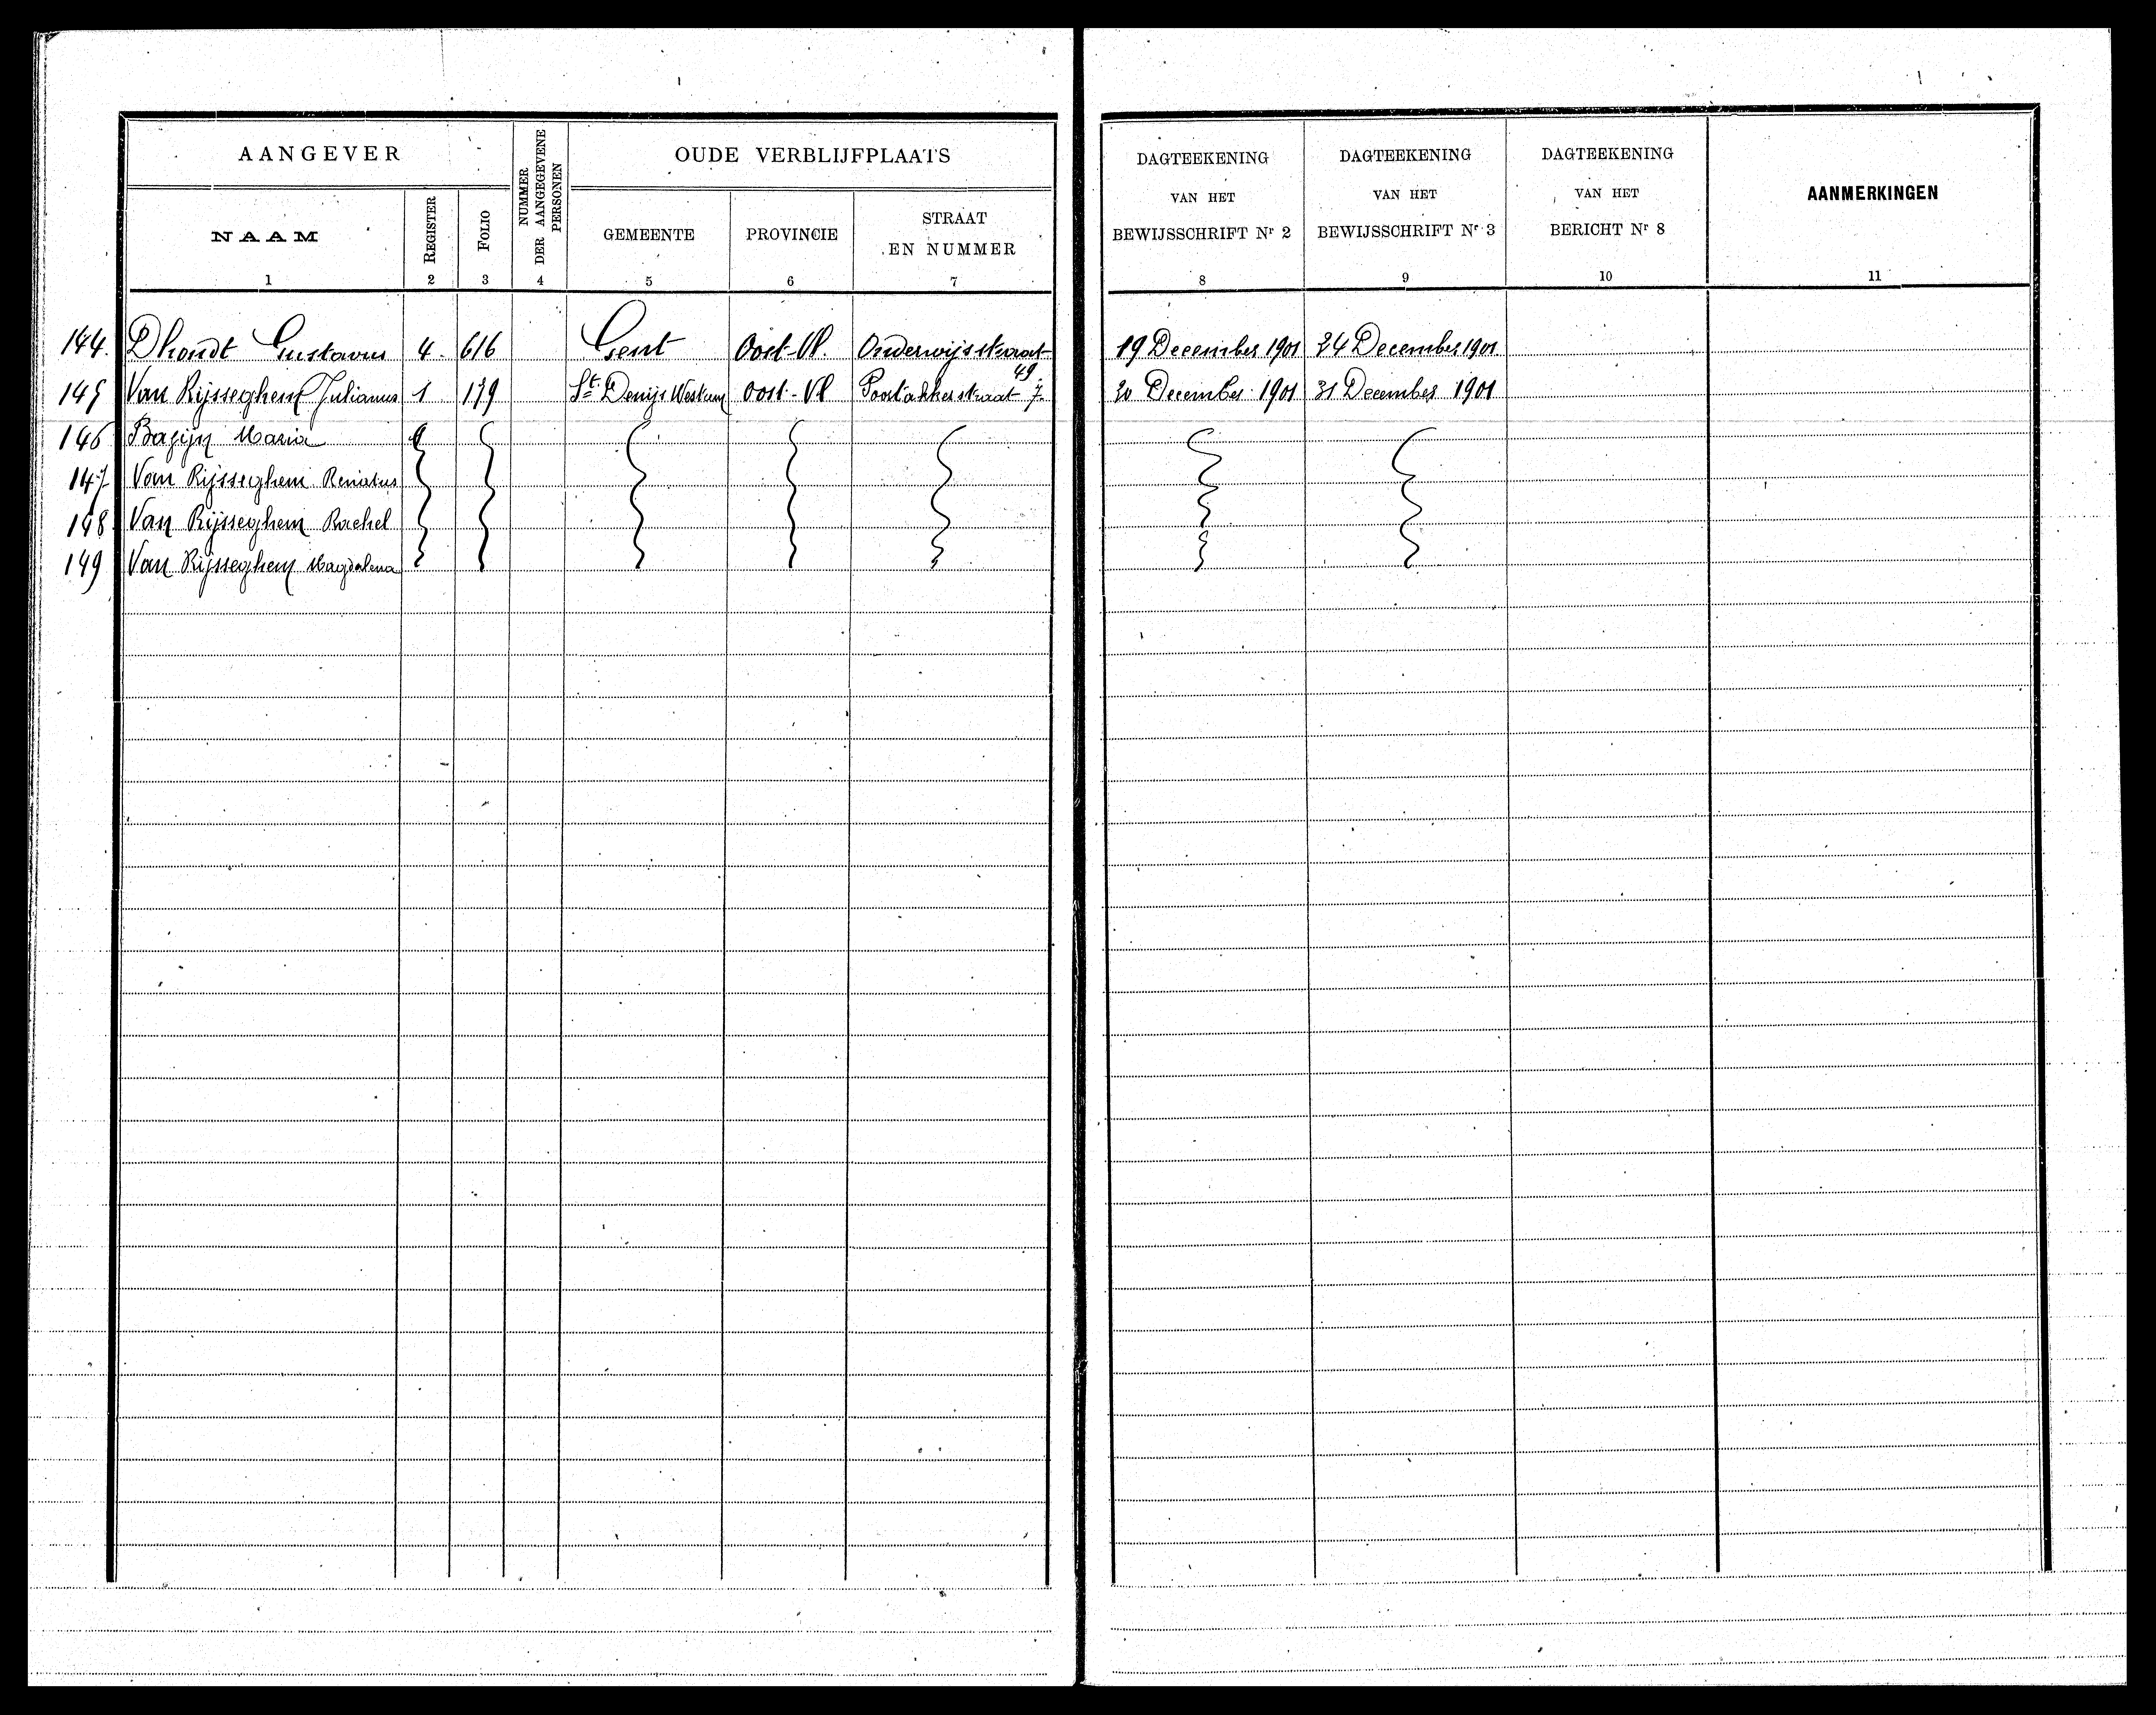 AANGEVER
NUMMER DER AANGEGEVENE PERSONEN
OUDE VERBLIJFPLAATS
DAGTEEKENING VAN HET BEWIJSSCHRIFT Nr 2
DAGTEEKENING VAN HET BEWIJSSCHRIFT Nr 3
DAGTEEKENING VAN HET BERICHT Nr 8
AANMERKINGEN
NAAM
REGISTER
FOLIO
GEMEENTE
PROVINCIE
STRAAT EN NUMMER
1 2 3 4 5 6 7 8 9 10 11
144. Dhondt Gustavus 4. 616 Gent Oost-Vl. Onderwijsstraat 49. 19 December 1901 24 December 1901
145 Van Rijsseghem Julianus 1 179 St Denijs Westrem Oost-Vl Poortakkerstraat 7. 20 December 1901 31 December 1901
146 Maria
147 Van Rijsseghem Renatus
148 Van Rijsseghem Rachel
149 Van Rijsseghem Magdalena